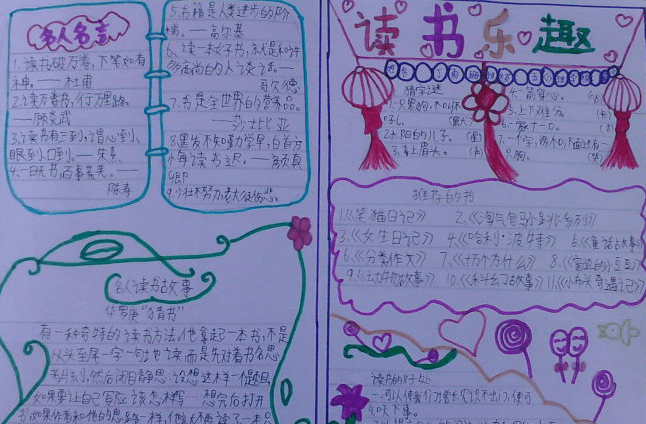 名人名言
1.读书破万卷,下笔如有
神。——杜甫
2.读万卷书,行万里路。
——顾炎武
3.读书有三到,谓心到、
眼到、口到。——朱熹
4.一日无书,百事荒芜。——
陈寿
5.书籍是人类进步的阶
梯。——高尔基
6.读一本好书,就是和许
多高尚的人谈话。——
歌德
7.书是全世界的营养品。
——莎士比亚
8.黑发不知勤学早,白首方
悔读书迟。——颜真
卿
9.少壮不努力,老大徒伤悲。
名人读书故事
华罗庚“猜书”
有一种奇特的读书方法,他拿起一本书,不是
从头至尾一字一句地读,而是先对着书名思
然后闭目静思:设想这样一个题目,
如果要让自己写应该怎样写……想完后打开
书,如果作者和他的思路一样,他就不再读了
读书乐趣
猜字谜
1.一只黑狗,不叫
2.太阳的儿子。
3.
4.一箭穿心。
5.上下难分。
6.一家十一口。
7.一个字,两个口,下面还有一
只狗。
推荐的书
1.《笑猫日记》 2.《淘气包马小跳系列》
3.《女生日记》 4.《哈利·波特》 5.《童话故事》
6.《分类作文》 7.《十万个为什么》 8.《窗边的小豆豆》
9.《 故事》 10.《科幻故事》 11.《小布头奇遇记》
读书的好处
一、可以使我们 不出门,便可
知天下事。